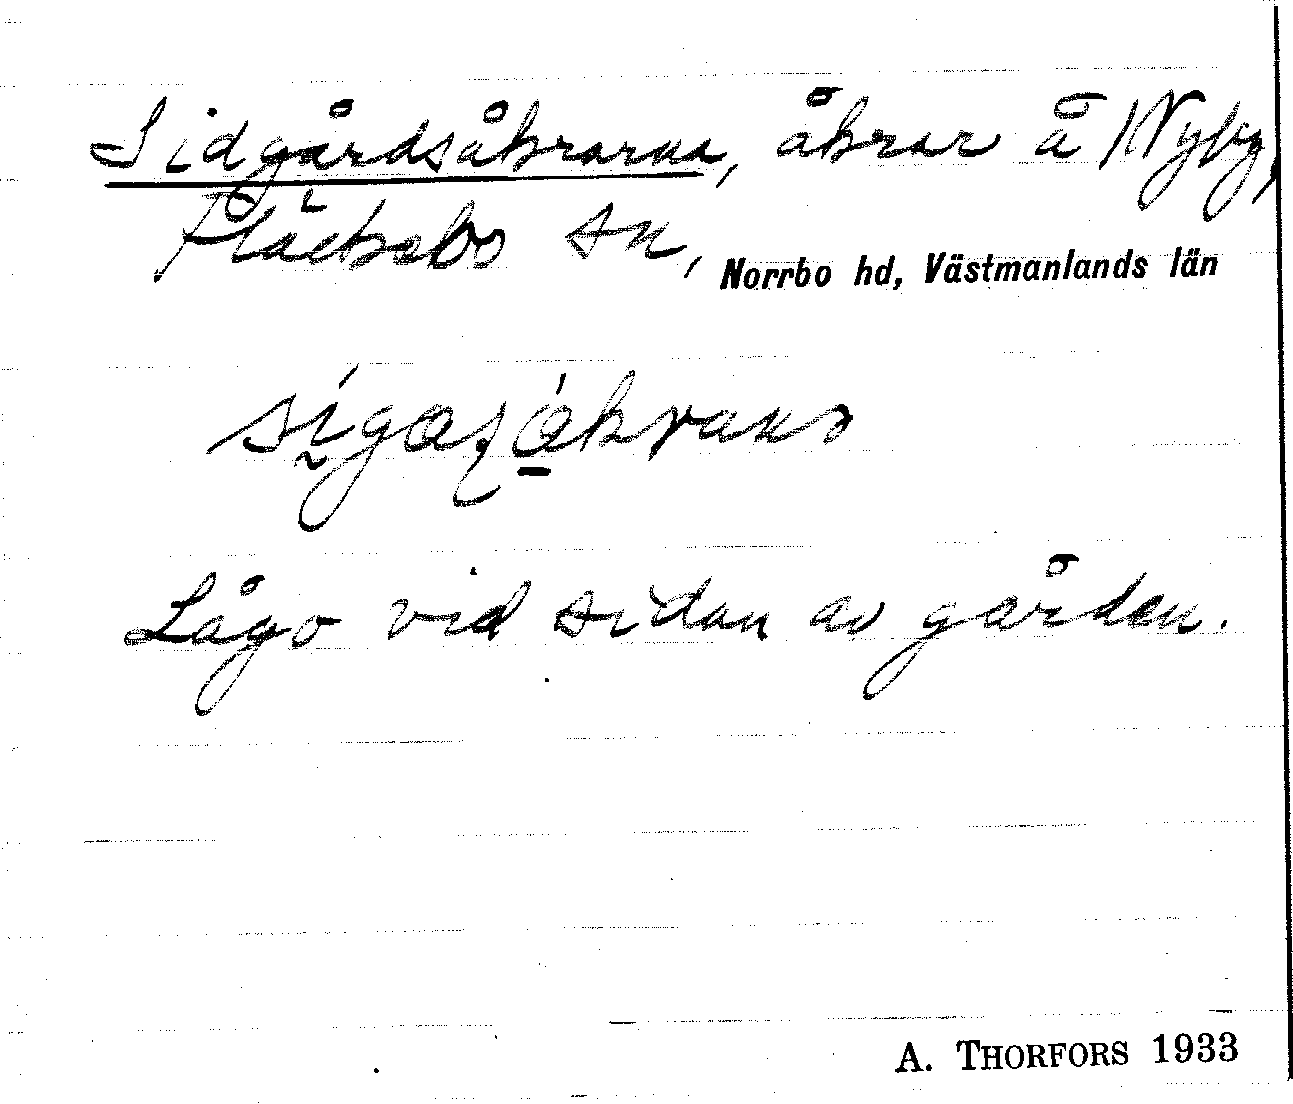 Sidgårdsåkrarna, åkrar å Nyby,
Fläckebo sn, Norrbo hd, Västmanlands län
Lågo vid sidan av gården.
A. THORFORS 1933